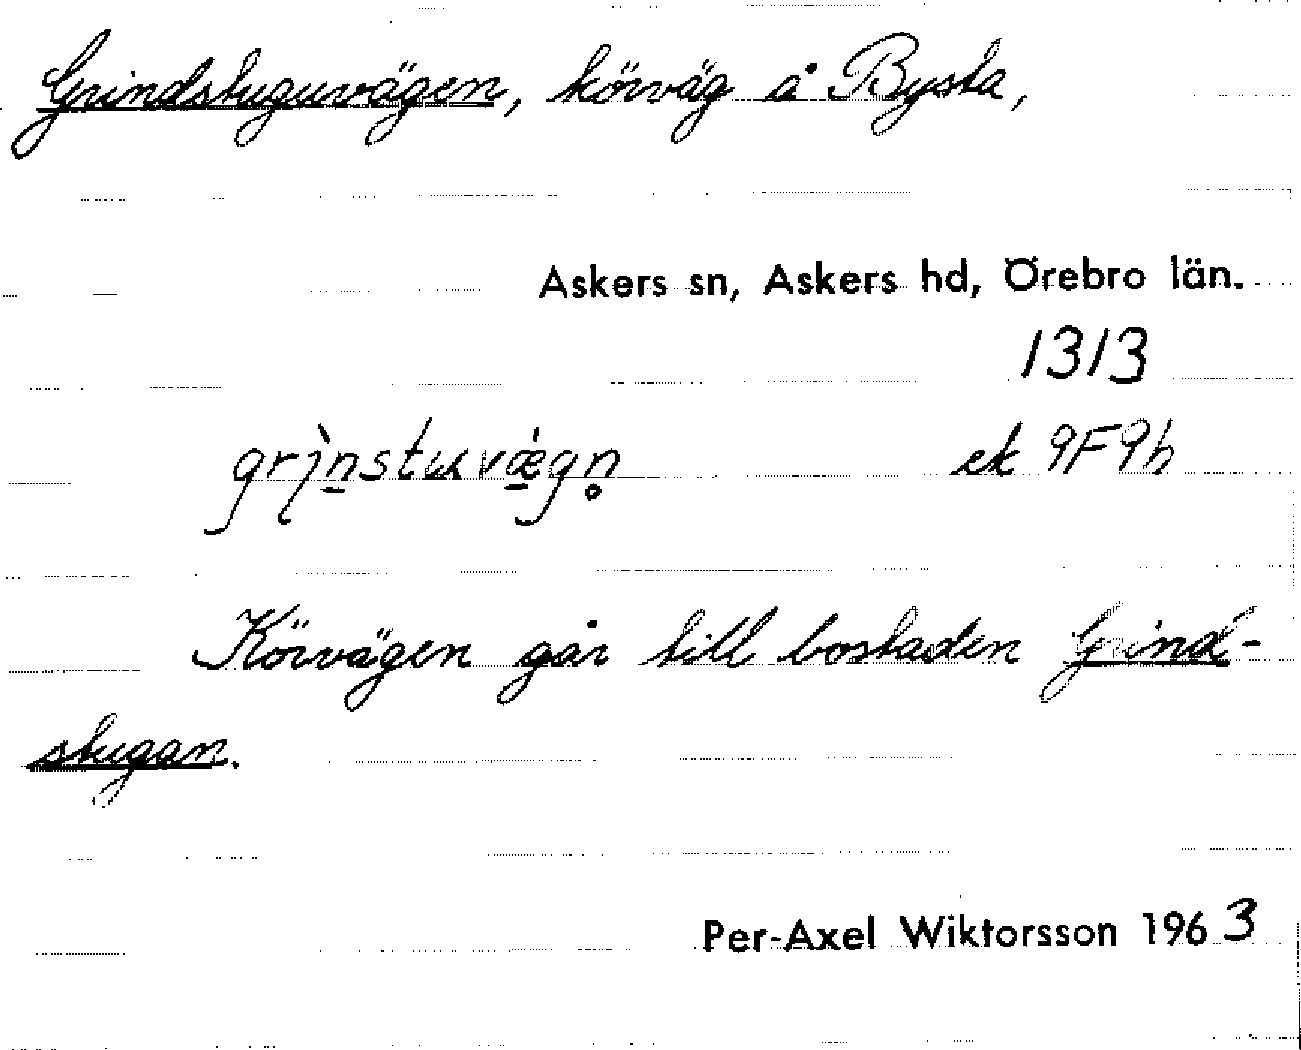 Grindstuguvägen, körväg å Bysta,
Askers sn, Askers hd, Örebro län.
1313
grı̨̀n̲stuvǽ̲gn̥ ek 9F9h
Körvägen går till bostaden Grind-
stugan.
Per-Axel Wiktorsson 1963